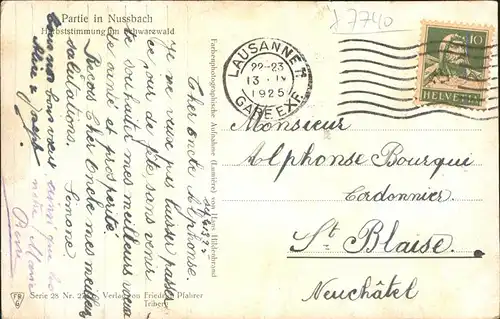 Partie in Nussbach
Herbststimmung im Schwarzwald
J 7740
LAUSANNE
22-23
13. IV
1925
GARE EXP.
10
HELVETIA
Monsieur
Alphonse Bourqui
Cordonnier
St. Blaise.
Neuchâtel
Farbenphotographische Aufnahme (Lumière) von Hans Hildenbrand
Cher oncle Alphonse.
Je ne veux pas laisser passer
ce jour de fête sans venir
te souhaiter mes meilleurs vœux
de santé et prospérité.
Reçois Cher Oncle mes meilleures
salutations.
Simone
ainsi que
FP
G
Serie 28 Nr. Verlag von Friedr. Pfahrer
Triberg